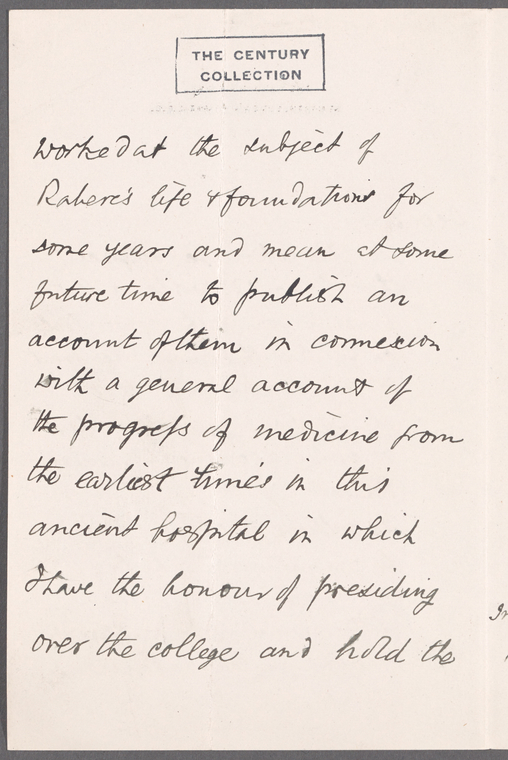 THE CENTURY
COLLECTION
worked at the subject of
Rahere's life & foundations for
some years and mean at some
future time to publish an
account of them in connexion
with a general account of
the progress of medicine from
the earliest times in this
ancient hospital in which
I have the honour of presiding
over the college and hold the